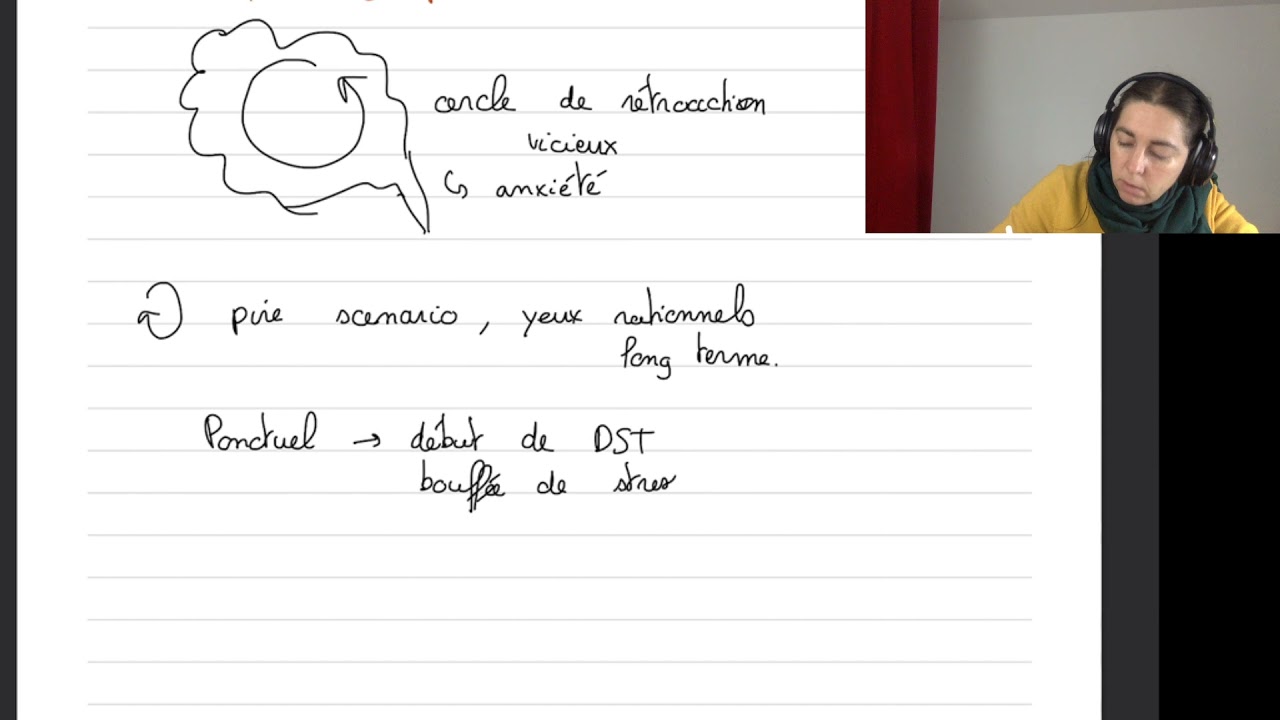 cercle de rétroaction
vicieux
↳ anxiété
pire scenario, yeux rationnels
long terme.
Ponctuel → début de DST
bouffée de stress